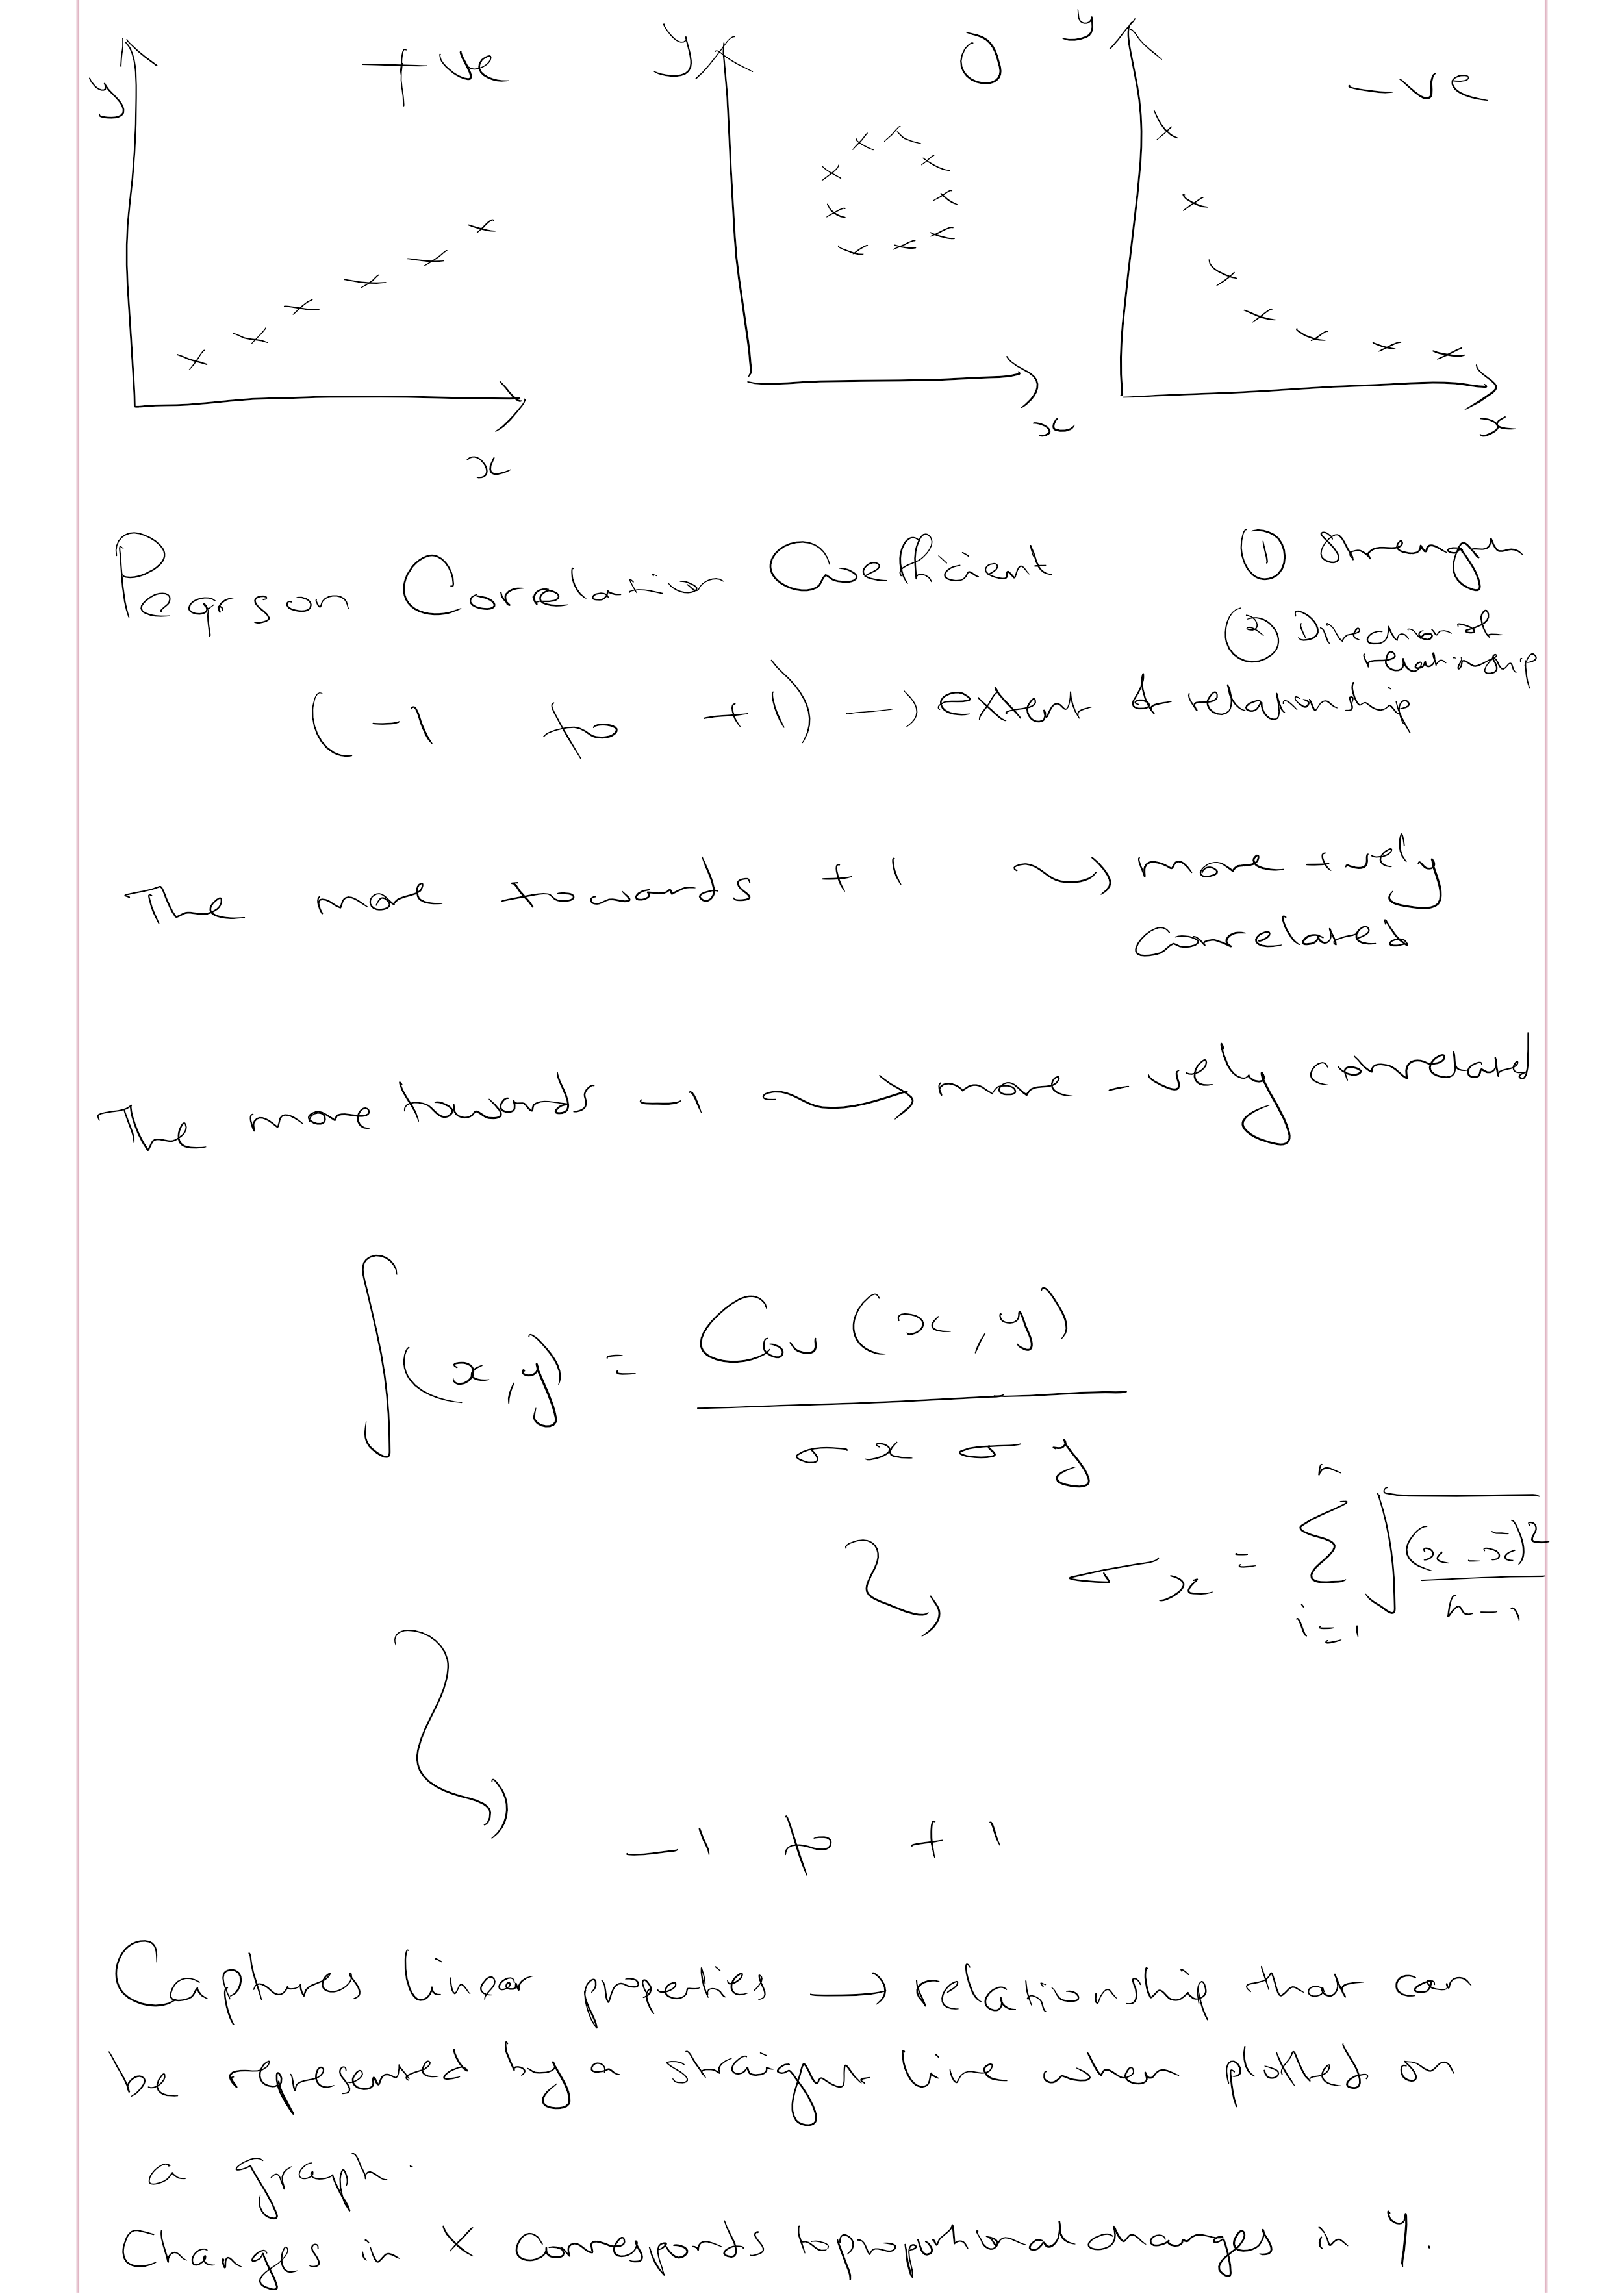 y +ve y 0 y -ve
x x x
Pearson Corelation Coefficient ① Strength
② Directional
relationship
(-1 to +1) → extent of relationship
The more towards +1 → more +vely
correlated
The more towards -1 → more -vely correlated
∫(x,y) = Cov(x,y)
σx σy
σx = n Σ i=1 √((x-x̄)² / n-1)
-1 to +1
Captures linear properties → relationship that can
be represented by a straight line when plotted on
a graph.
Changes in X corresponds to proportional changes in Y.